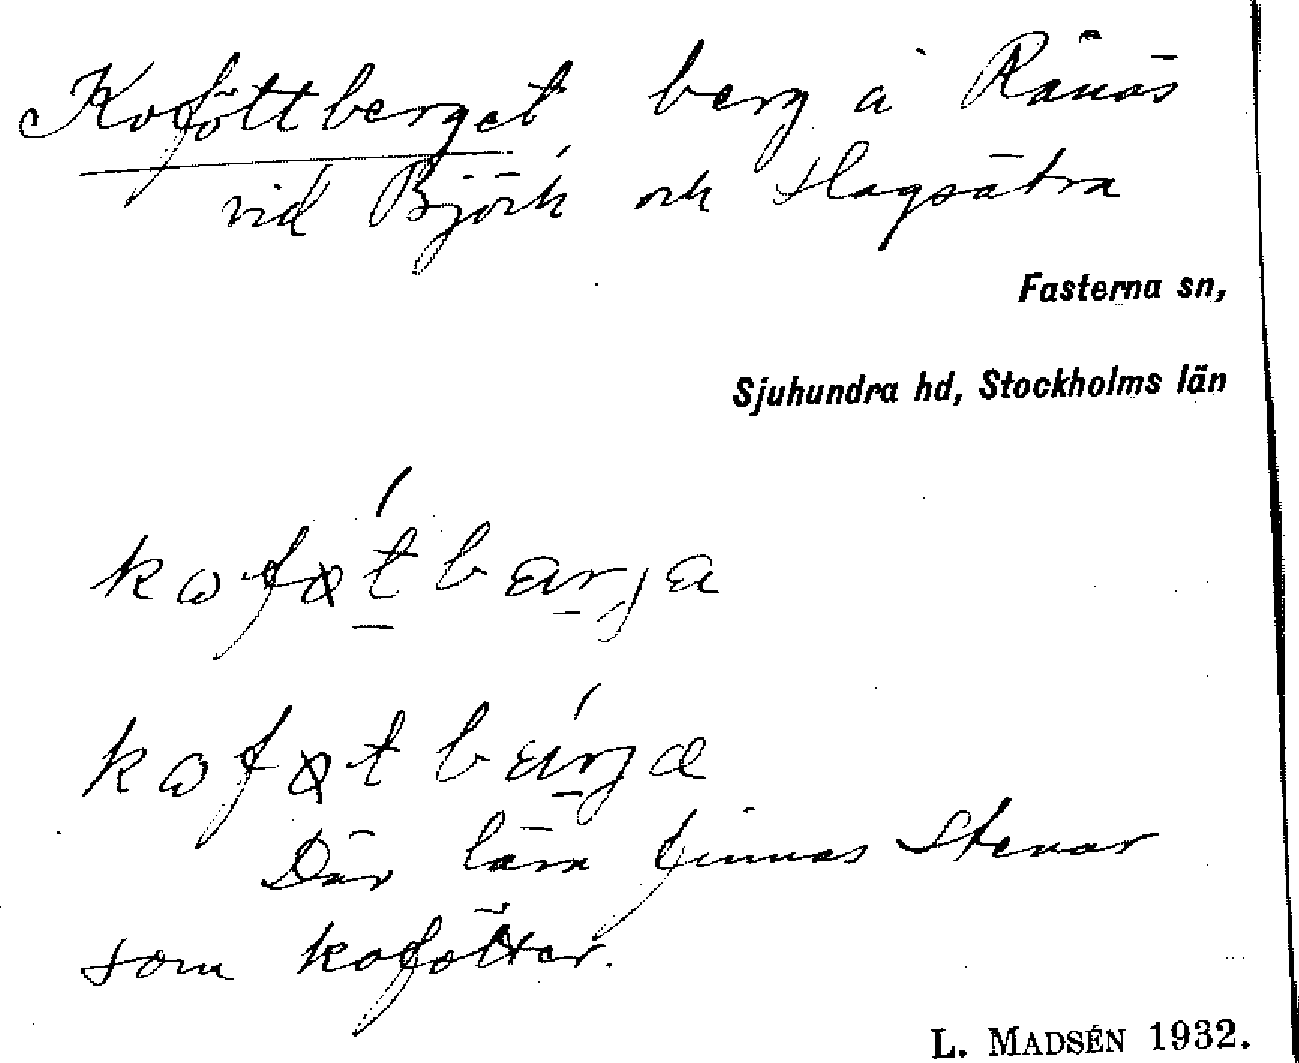 Koföttberget berg å Rånäs
vid Björk och Hagsätra
Fasterna sn,
Sjuhundra hd, Stockholms län
Där lära finnas Stenar
som kofötter.
L. MADSÉN 1932.